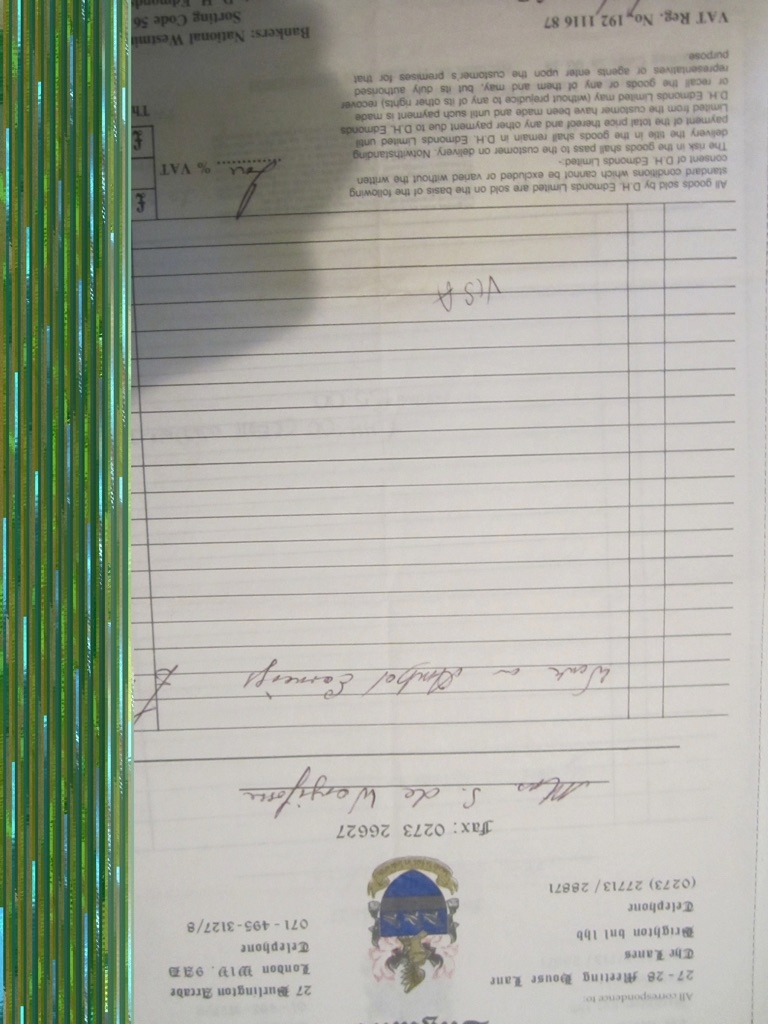 All correspondence to:
27 - 28 Meeting House Lane
The Lanes
Brighton bn1 1hb
Telephone
(0273) 27713 / 28871
27 Burlington Arcade
London W1V. 9AD
Telephone
071 - 495 - 3127/8
Fax: 0273 26627
Mrs S. de
Work on Earrings £
VISA
All goods sold by D.H. Edmonds Limited are sold on the basis of the following
standard conditions which cannot be excluded or varied without the written
consent of D.H. Edmonds Limited:-
The risk in the goods shall pass to the customer on delivery. Notwithstanding
delivery the title in the goods shall remain in D.H. Edmonds Limited until
payment of the total price thereof and any other payment due to D.H. Edmonds
Limited from the customer have been made and until such payment is made
D.H. Edmonds Limited may (without prejudice to any of its other rights) recover
or recall the goods or any of them and may, but its duly authorised
representatives or agents enter upon the customer's premises for that
purpose
£
% VAT
£
Th
VAT Reg. No. 192 1116 87
Bankers: National Westmin
Sorting Code 56
D. H. Edmonds